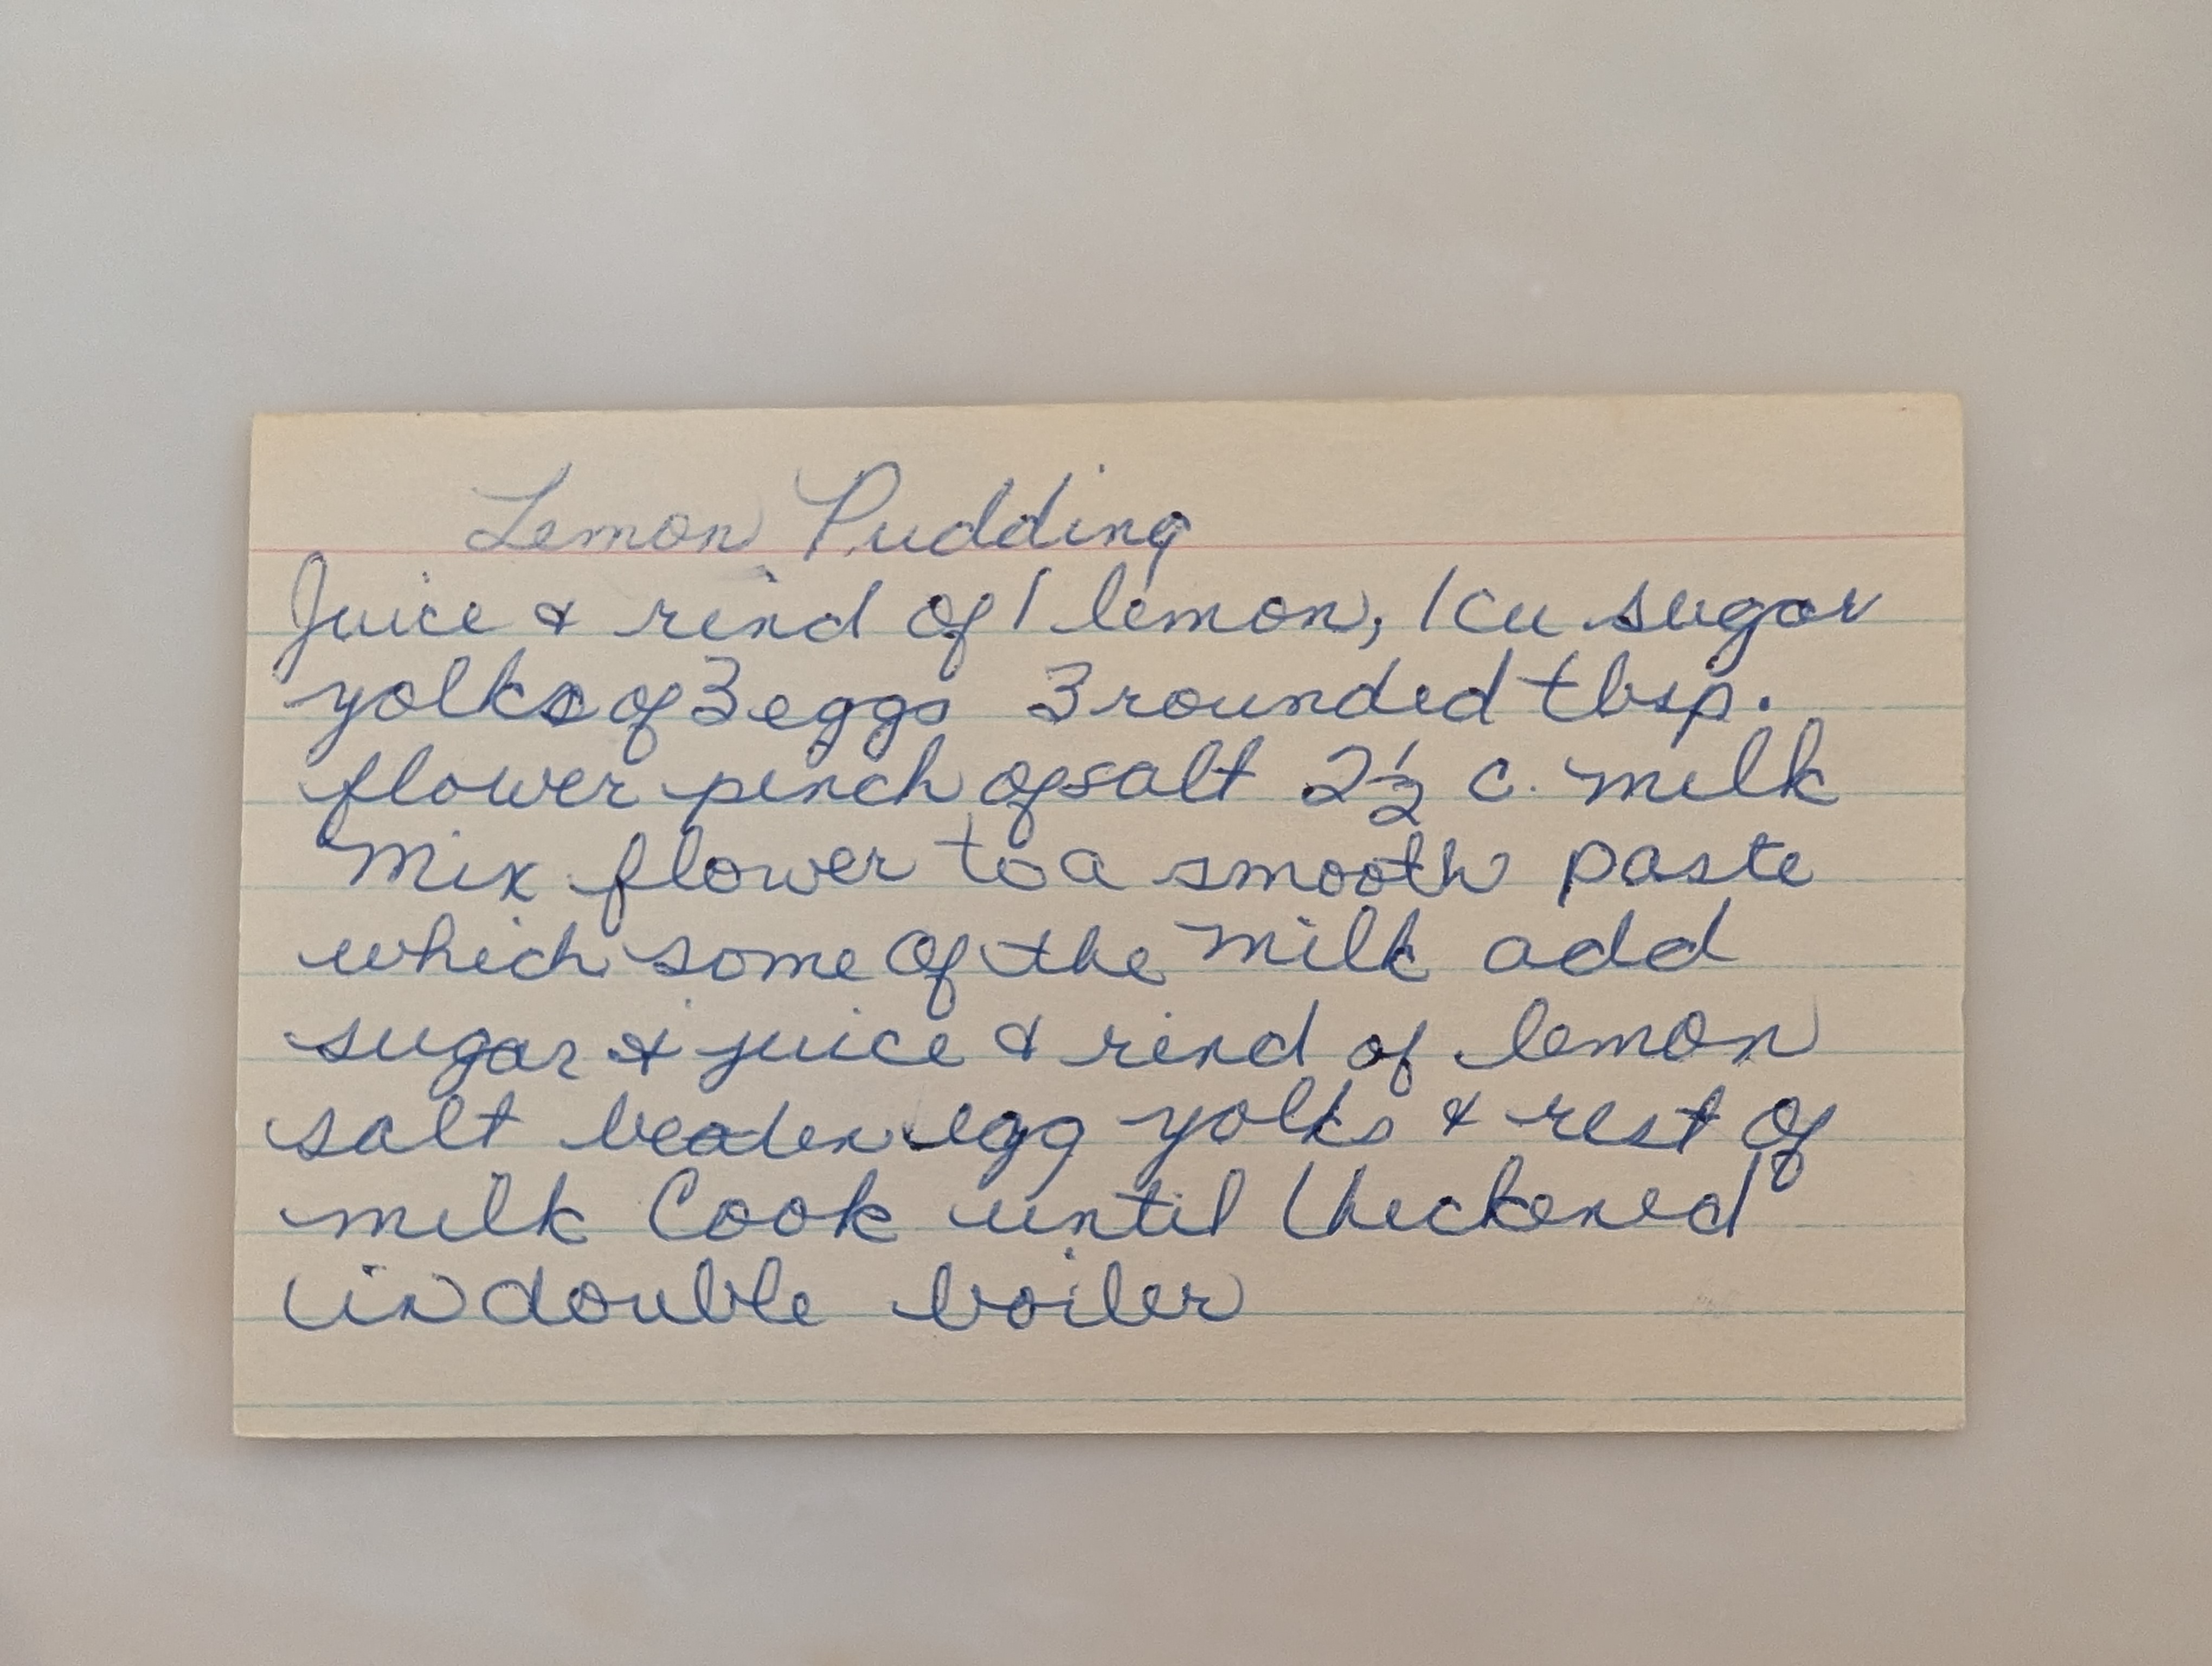 Lemon Pudding
Juice & rind of 1 lemon, 1 cu sugar
yolks of 3 eggs 3 rounded tbsp.
flower pinch of salt 2½ c. milk
Mix flower to a smooth paste
which some of the milk add
sugar & juice & rind of lemon
salt beaten egg yolks & rest of
milk Cook until thickened
in double boiler